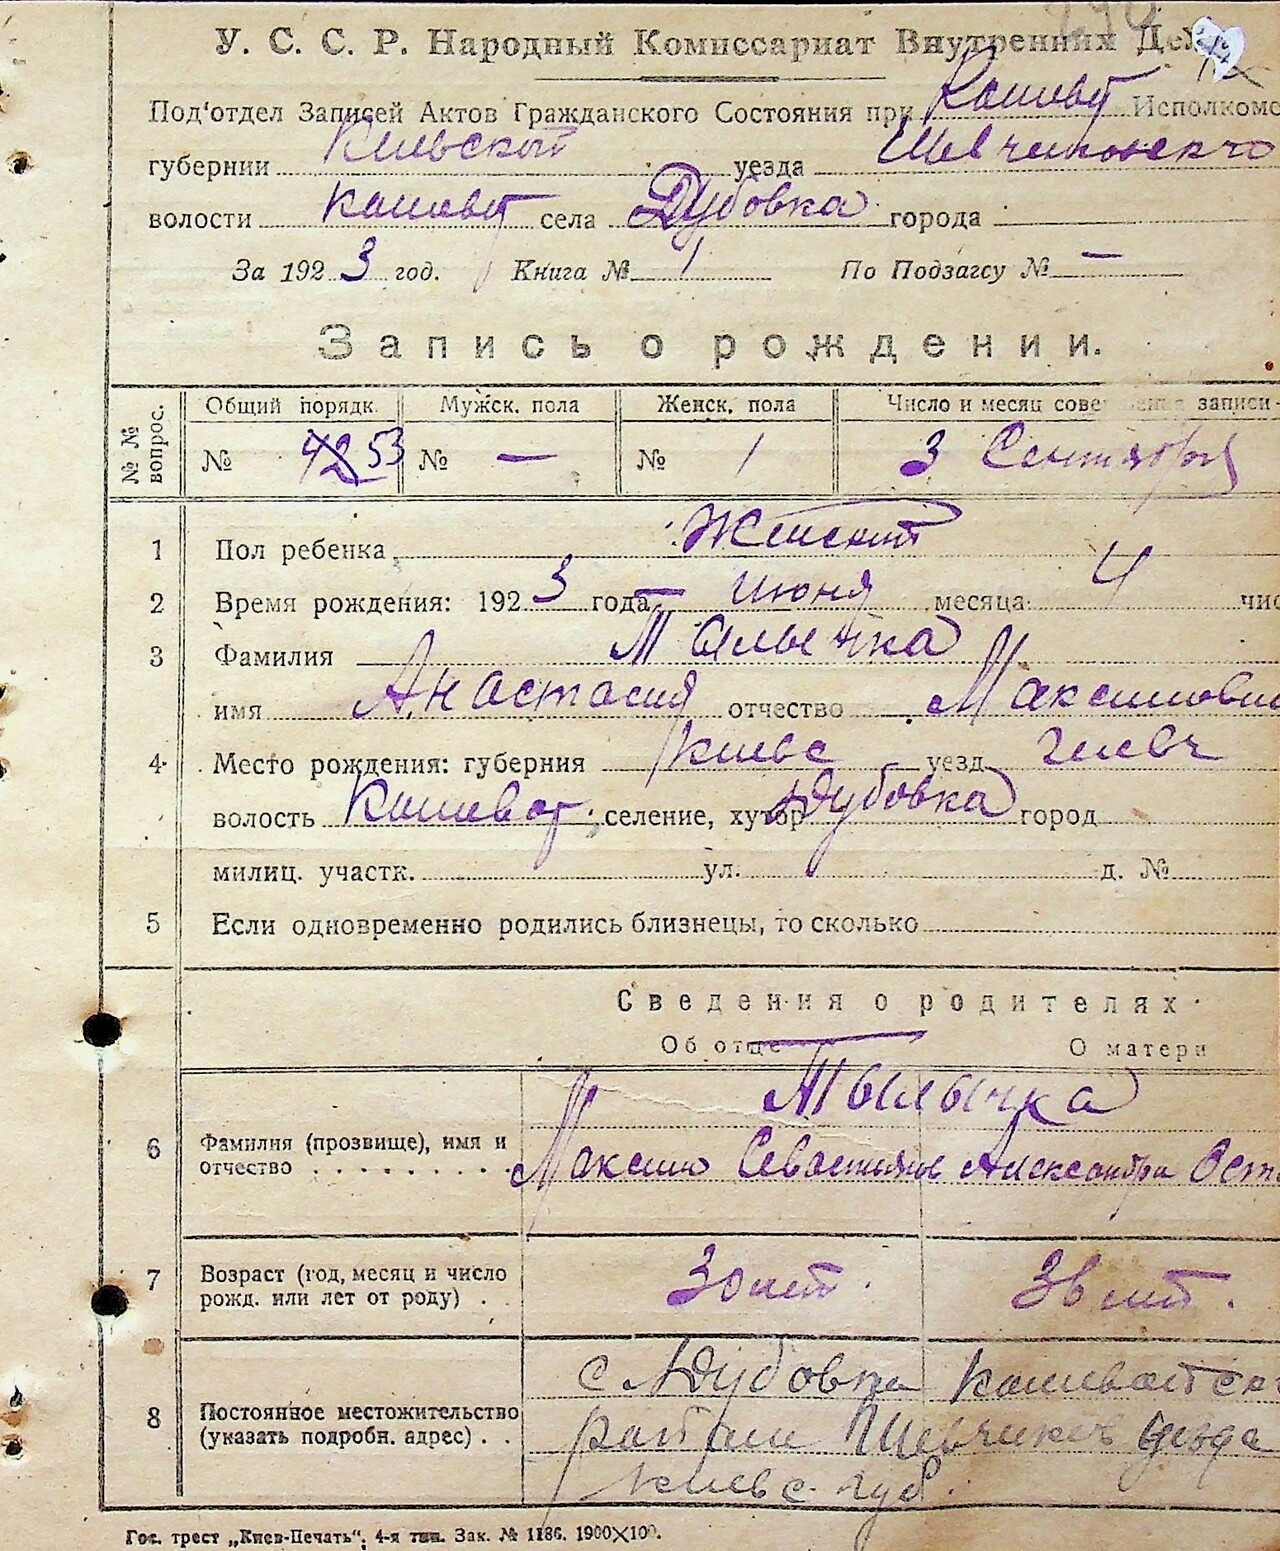 У. С. С. Р. Народный Комиссариат Внутренних Дел
Под'отдел Записей Актов Гражданского Состояния при Кошеват Исполкоме
губернии Киевской уезда Шевченковского
волости Кошеват села Дубовка города
За 1923 год. Книга № 1 По Подзагсу № —
Запись о рождении.
№ № вопрос. Общий порядк. Мужск. пола Женск. пола Число и месяц совершения записи
№ 53 № — № 1 3 Сентября
1 Пол ребенка Женский
2 Время рождения: 1923 года Июня месяца 4 чис
3 Фамилия Талычка
имя Анастасия отчество Максимовна
4 Место рождения: губерния Киевс уезд Шевч
волость Кошеват. селение, хутор Дубовка город
милиц. участк. ул. д. №
5 Если одновременно родились близнецы, то сколько
Сведения о родителях
Об отце О матери
Тылычка
6 Фамилия (прозвище), имя и отчество Максим Севастьянов Александра Оста
7 Возраст (год, месяц и число рожд. или лет от роду) 30 лет. 36 лет.
с Дубовка Кошеватск
8 Постоянное местожительство (указать подробн. адрес) района Шевченков уезда
Киевс. губ.
Гос. трест „Киев-Печать“; 4-я тип. Зак. № 1186. 1900×100.